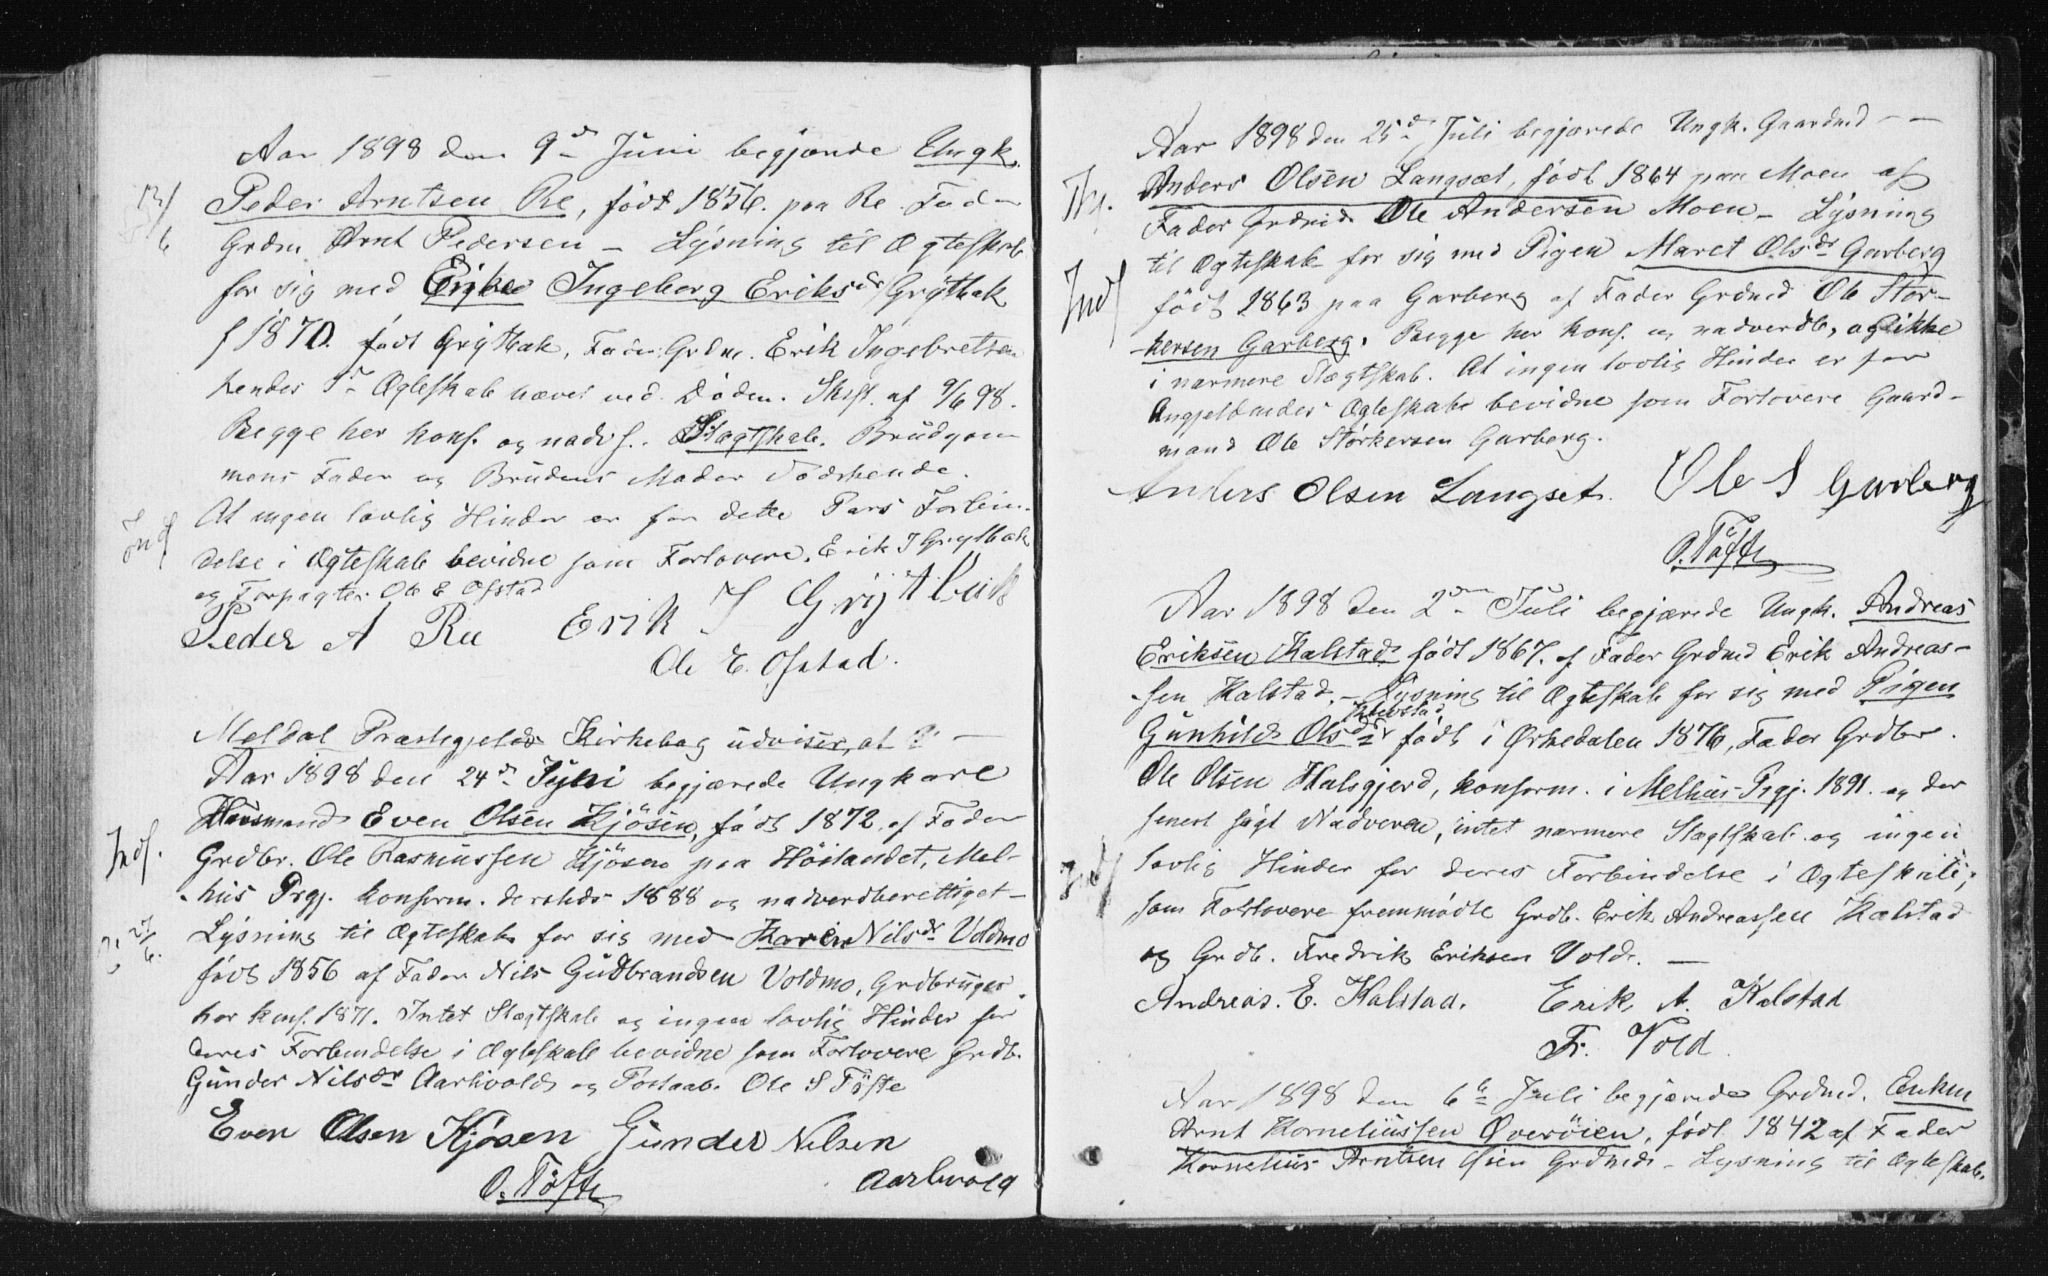 Aar 1898 den 9d Juni begjærede Ungk.
Peder Arntsen Re, födt 1856. paa Re. Fad-
13/6
Grdm. Arnt Pedersen – Lysning til Ægteskab
for sig med Enke Ingeborg Eriksdr Grytbak
f 1870. födt Grytbak, Fader Grdm. Erik Ingebretsen
hendes 1ste Ægteskab hævet ved Döden. Skift. af 9/6 98.
Begge her konf. og nadv. Slægtskab. Brudgom-
mens Fader og Brudens Moder Södskende.
At ingen lovlig Hinder er for dette Pars Forbin-
Indf
delse i Ægteskab bevidne som Forlovere, Erik I Grytbak
og Forpagter Ole E Ofstad
Peder A Ree Erik I Grytbak
Ole E. Ofstad.
Meldal Præstegjelds Kirkebog udviser, at
Aar 1898 den 24d Juni begjærede Ungkarl
Husmand Even Olsen Kjösen, födt 1872, af Fader
Indf.
Grdbr. Ole Rasmussen Kjösen paa Höilandet, Mel-
hus Prgj. konform. dersteds 1888 og nadverdberettiget –
27/6.
Lysning til Ægteskab for sig med Karen Nilsdr Voldmo
födt 1856 af Fader Nils Gudbrandsen Voldmo, Grdbruger
her konf. 1871. Intet Slægtskab og ingen lovlig Hinder for
deres Forbindelse i Ægteskab bevidne som Forlovere Grdb.
Gunder Nils Aarhvold og Postaab. Ole S Töfte
Even Olsen Kjösen Gunder Nilsen
O. Töfte Aarhvold
Aar 1898 den 25d Juli begjærede Ungk. Gaardmd – –
Anders Olsen Langsæt, födt 1864 paa Moen af
Fader Grdmd Ole Andersen Moen – Lysning
til Ægteskab for sig med Pigen Maret Olsdr Garberg
Indf
födt 1863 paa Garberg af Fader Grdmd Ole Stör-
kersen Garberg. Begge her konf. og nadverdb., og ikke
i nærmere Slægtskab. At ingen lovlig Hinder er for
Angjeldendes Ægteskab bevidne som Forlovere Gaard-
mand Ole Störkersen Garberg.
Anders Olsen Langset. Ole S Garberg
O. Töfte
Aar 1898 den 2den Juli begjærede Ungk. Andreas
Eriksen Kalstad födt 1867. af Fader Grdmd Erik Andreas-
sen Kalstad. – Lysning til Ægteskab for sig med Pigen
Gunhild Olsdr födt i Örkedalen 1876, Fader Grdbr.
Ole Olsen Halsgjerd, konform. i Melhus Prgj. 1891. og der
senest sögt Nadveren, intet nærmere Slægtskab og ingen
Indf
lovlig Hinder for deres Forbindelse i Ægteskab;
som Forlovere fremmödte Grdb. Erik Andreassen Kalstad
og Grdb. Fredrik Eriksen Vold. –
Andreas. E. Kalstad. Erik. A. Kalstad
Fr. Vold
Aar 1898 den 6te Juli begjærede Grdmd. Enkm
Arnt Korneliussen Överöien, födt 1842 af Fader
Kornelius Arntsen Öien Grdmd – Lysning til Ægteskab.